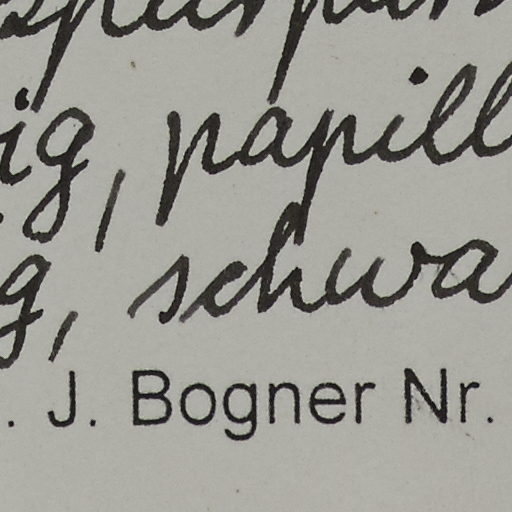 ig, papill
g, schwa
. J. Bogner Nr.